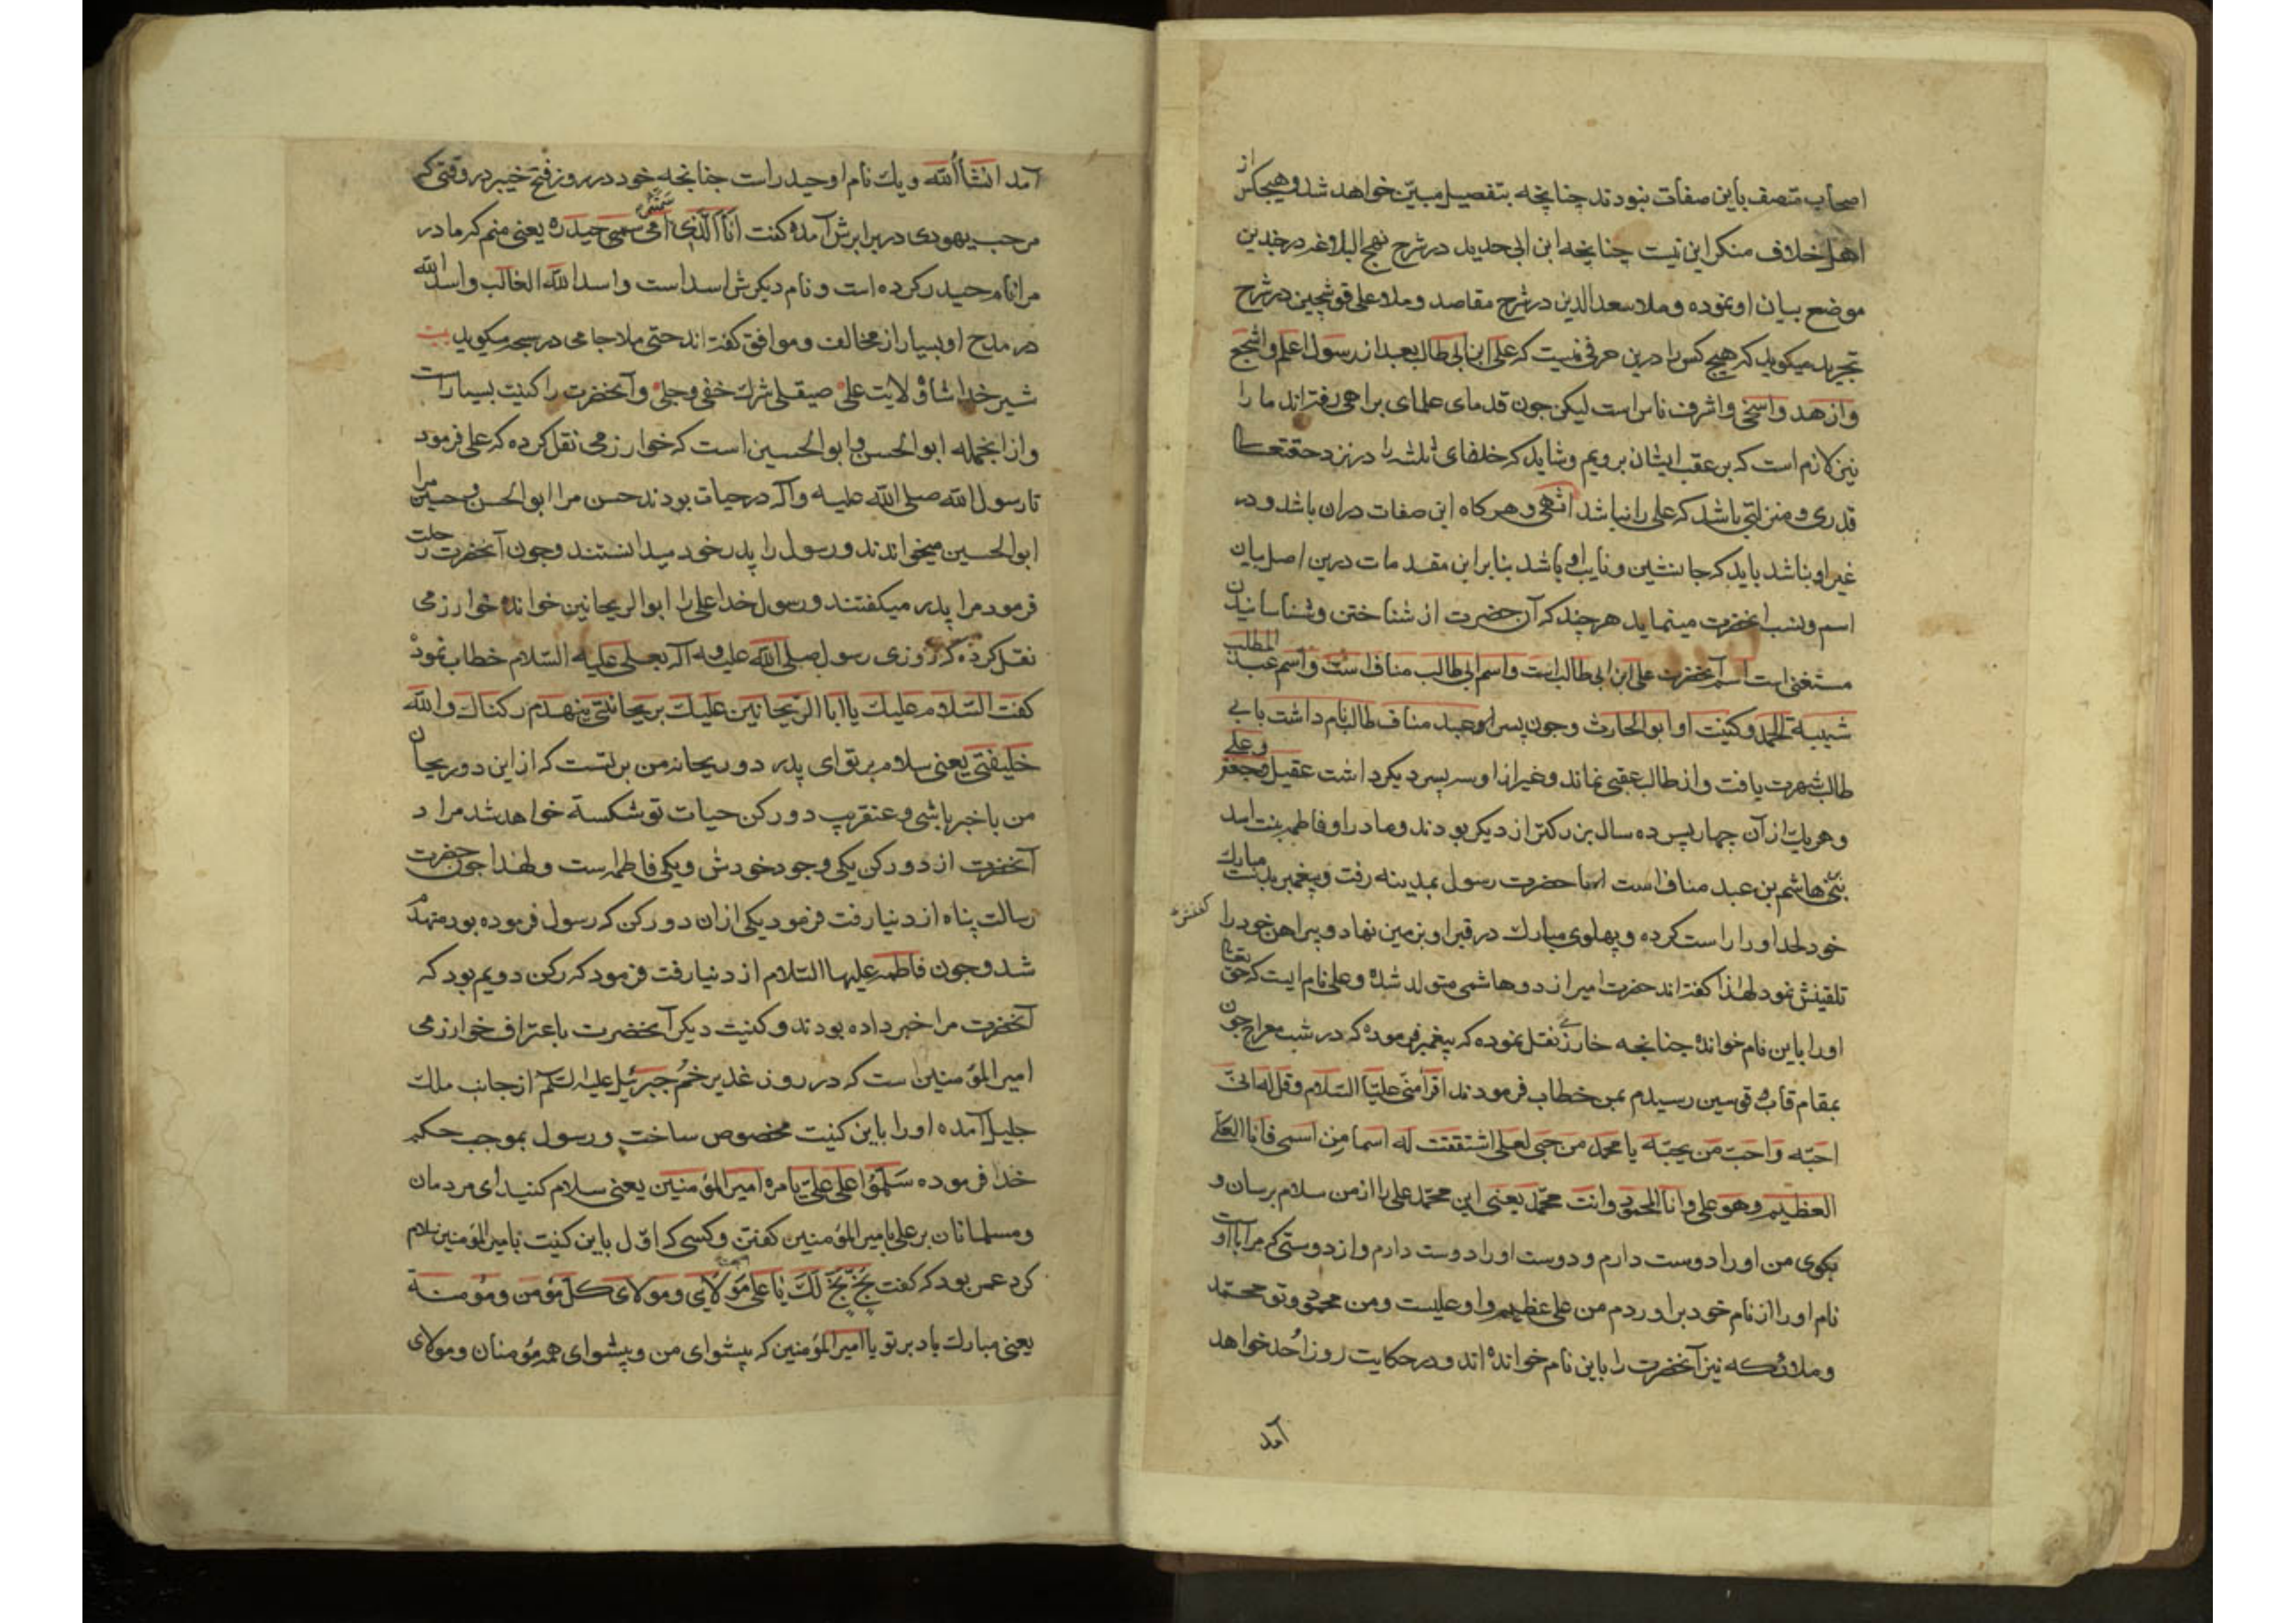 اصحاب متصف باین صفات نبودند چنانچه بتفصیل مبیّن خواهد شد و هیچکس از
اهل خلاف منکر این نیست چنانچه ابن ابی حدید در شرح نهج البلاغه در چندین
موضع بیان او نموده و ملا سعد الدین در شرح مقاصد و ملا علی قوشچین در شرح
تجرید میکوید که هیچ کس را درین حرفی نیست که علی ابن ابی طالب بعد از رسول اعلم و اشجع
و ازهد و اسخی و اشرف ناس است لیکن چون قدمای علمای براهی رفته اند ما را
نیز لازم است که بر عقب ایشان برویم و شاید که خلفای ثلثه را در نزد حقتعالی
قدری و منزلتی باشد که علی را نباشد انتهی و هر کاه این صفات دران باشد و در
غیر او نباشد باید که جانشین و نایب او باشد بنابر این مقدمات درین اصل بیان
اسم و نسب انحضرت مینماید هر چند که آن حضرت از شناختن و شناسانیدن
مستغنی است اسم آنحضرت علی ابن ابی طالب است و اسم ابی طالب مناف است و اسم عبد المطلب
شیبة الحمد و کنیت او ابو الحارث و چون پسر او عبد مناف طالب نام داشت بابی
طالب شهرت یافت و از طالب عقبی نماند و غیر از او سه پسر دیکر داشت عقیل و جعفر و علی
و هر یک از آن چهار پسر ده سال بزرکتر از دیکر بودند و مادر او فاطمه بنت اسد
بنی هاشم بن عبد مناف است با حضرت رسول بمدینه رفت و پیغمبر بدست مبارک
خود لحد او را راست کرده و پهلوی مبارک در قبر او بزمین نهاد و پیراهن خود را کفنش
تلقینش نمود لهذا کفته اند حضرت امیر از دو هاشمی متولد شده و علی نام ایست که حق تعالی
او را باین نام خوانده چنانچه خارزمی نقل نموده که پیغمبر فرموده که در شب معراج چون
بمقام قاب قوسین رسیدم بمن خطاب فرمودند اقرا منّی علیّا السّلام و قل له انّی
احبّه و احبّ من یحبّه یا محمد من حبی لعلی اشتققت له اسما من اسمی فانا العلی
العظیم و هو علی و انا المحمود و انت محمّد یعنی این محمّد علی را از من سلام برسان و
بکوی من او را دوست دارم و دوست او را دوست دارم و از دوستی که مرا با او است
نام او را از نام خود براوردم من علی عظیمم و او علیست و من محمود و تو محمّد
و ملائکه نیز آنحضرت را باین نام خوانده اند و در حکایت روز اُحد خواهد
آمد
آمد انشأالله و یک نام او حیدر است چنانچه خود در روز فتح خیبر در وقتی که
مرحب یهودی در برابرش آمده کفت انا الّذی سمّتنی امی حیدره یعنی منم که مادر
مرا نام حیدر کرده است و نام دیکرش اسد است و اسد الله الغالب و اسد الله
در مدح او بسیار از مخالف و موافق کفته اند حتی ملا جامی در سبحه میکوید بیت
شیر خدا شاه ولایت علی صیقلی شرک خفی و جلی و آنحضرت را کنیت بسیار است
و از انجمله ابو الحسن و ابو الحسین است که خوارزمی نقل کرده که علی فرمود
تا رسول الله صلی الله علیه و آله در حیات بودند حسن مرا ابو الحسن و حسین مرا
ابو الحسین میخواندند و رسول را پدر خود میدانستند و چون آنحضرت رحلت
فرمود مرا پدر میکفتند و رسول خدا علی را ابو الریحانین خوانده خوارزمی
نقل کرده که روزی رسول صلی الله علیه و آله بعلی علیه السّلام خطاب نمود
کفت السّلام علیک یا ابا الرّیحانین علیک بریحانتی ینهدم رکناک و الله
خلیفتی یعنی سلام بر تو ای پدر دو ریحانه من بر تست که از این دو ریحان
من با خبر باشی و عنقریب دو رکن حیات تو شکسته خواهد شد مراد
آنحضرت از دو رکن یکی وجود خودش و یکی فاطمه است و لهذا چون حضرت
رسالت پناه از دنیا رفت فرمود یکی ازان دو رکن که رسول فرموده بود منهدم
شد و چون فاطمه علیها السّلام از دنیا رفت فرمود که رکن دویم بود که
آنحضرت مرا خبر داده بودند و کنیت دیکر آنحضرت باعتراف خوارزمی
امیر المؤمنین است که در روز غدیر خم جبرئیل علیه السّلم از جانب ملک
جلیل آمده او را باین کنیت مخصوص ساخت و رسول بموجب حکم
خدا فرموده سَلّمُوا علی علیّ بامره امیر المؤمنین یعنی سلام کنید ای مردمان
و مسلمانان بر علی بامیر المؤمنین کفتن و کسی که اوّل باین کنیت بامیر المؤمنین سلام
کرد عمر بود که کفت بَخّ بَخّ لَکَ یا علی مَولایی و مولای کل مؤمن و مؤمنة
یعنی مبارک باد بر تو یا امیر المؤمنین که پیشوای من و پیشوای همه مؤمنان و مولای